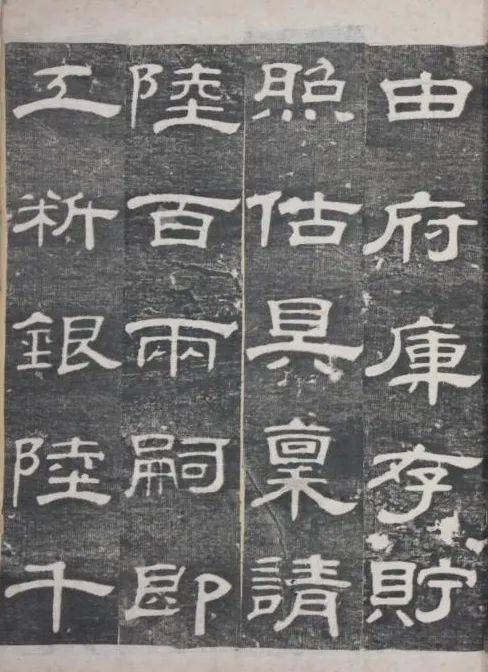 由府庫存貯
照估具稟請
陸百兩嗣即
工料銀陸千